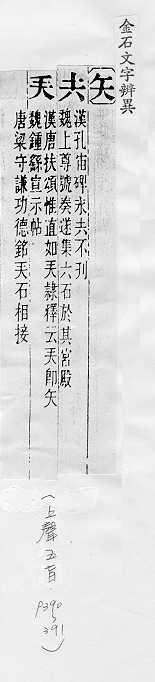 金石文字辨異
〔矢〕
夫
漢孔宙碑永夫不刊
魏上尊號奏遂集六石於其宮殿
天
漢唐扶頌惟直如天隸釋云天即矢
魏鍾繇宣示帖
唐梁守謙功德銘天石相接
(上聲五旨 P390~391)